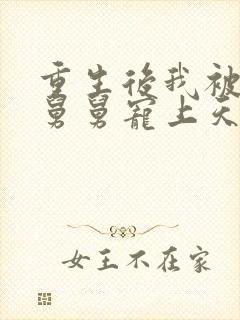 重生後我被
舅舅寵上天
女王不在家